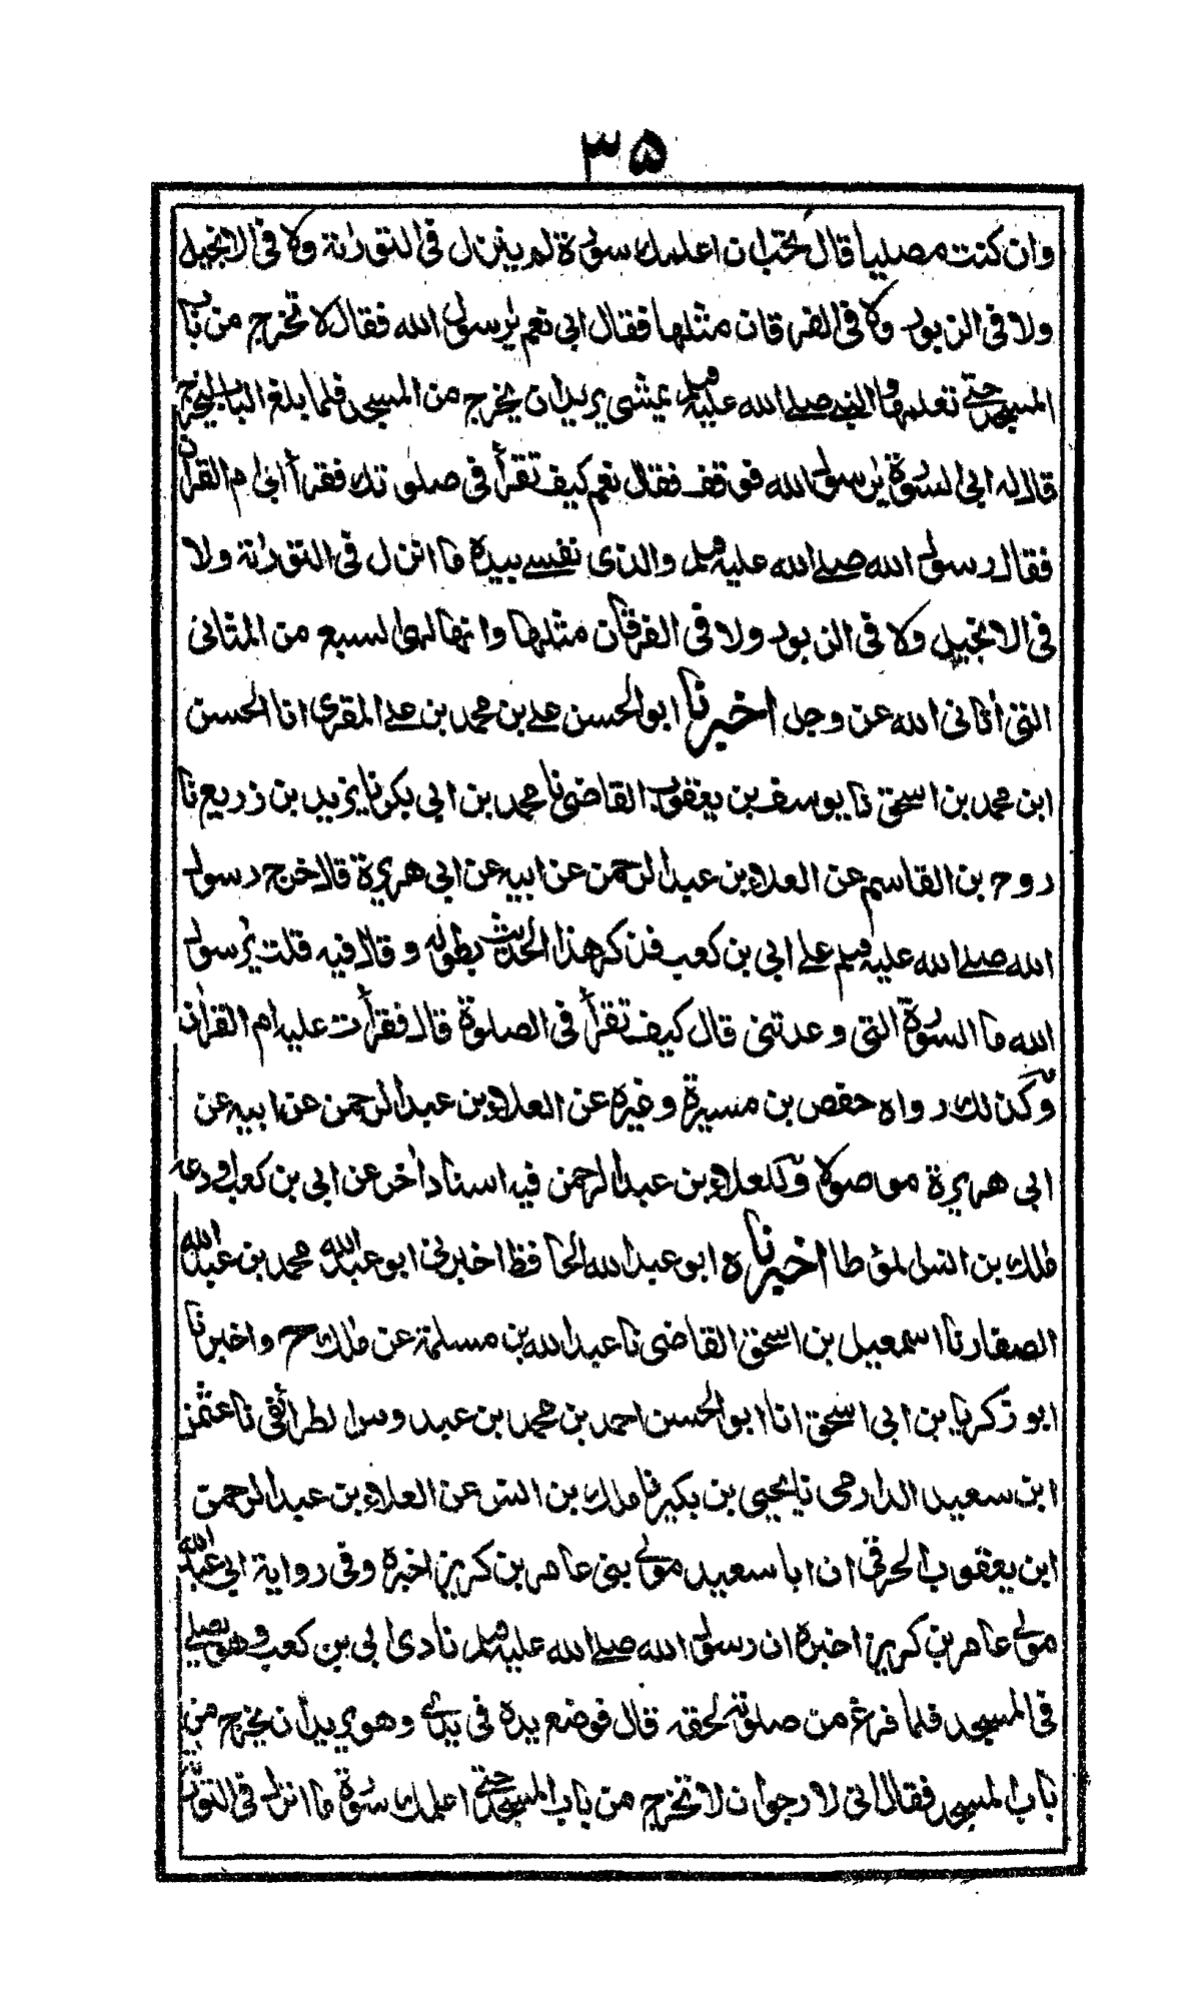 ٣٥
وان كنت مصليا قال تحب ان اعلمك سورة لم ينزل في التورٰىة ولا في الانجيل
ولا في الزبور ولا في الفرقان مثلها فقال ابي نعم يٰرسول الله فقال لا تخرج من باب
المسجد حتى تعلمها والنبي صلى الله عليه وسلم يمشي يريد ان يخرج من المسجد فلما بلغ الباب ليخرج
قال له ابي السورة يٰرسول الله فوقف فقال نعم كيف تقرأ في صلوتك فقرأ ابي ام القراٰن
فقال رسول الله صلى الله عليه وسلم والذي نفسي بيده ما انزل في التورٰىة ولا
في الانجيل ولا في الزبور ولا في الفرقان مثلها وانها لهي السبع من المثاني
التي اٰتاني الله عز وجل اخبرنا ابو الحسن علي بن محمد بن علي المقري انا الحسن
ابن محمد بن اسحق نا يوسف بن يعقوب القاضي نا محمد بن ابي بكر نا يزيد بن زريع نا
روح بن القاسم عن العلاء بن عبد الرحمن عن ابيه عن ابي هريرة قال خرج رسول
الله صلى الله عليه وسلم على ابي بن كعب فذكر هذا الحديث بطوله وقال فيه قلت يٰرسول
الله ما السورة التي وعدتني قال كيف تقرأ في الصلوة قال فقرأت عليه ام القراٰن
وكذلك رواه حفص بن ميسرة وغيره عن العلاء بن عبد الرحمن عن ابيه عن
ابي هريرة موصولا وللعلاء بن عبد الرحمن فيه اسناد اٰخر عن ابي بن كعب اودعه
مٰلك بن انس الموطا اخبرناه ابو عبد الله الحافظ اخبرني ابو عبد الله محمد بن عبد الله
الصفار نا اسمعيل بن اسحق القاضي نا عبد الله بن مسلمة عن مٰلك ح واخبرنا
ابو زكريا بن ابي اسحق انا ابو الحسن احمد بن محمد بن عبدوس الطرائفي نا عثمٰن
ابن سعيد الدارمي نا يحيى بن بكير نا مٰلك بن انس عن العلاء بن عبد الرحمن
ابن يعقوب الحرقي ان ابا سعيد مولى بني عامر بن كريز اخبره وفي رواية ابي عبد الله
مولى عامر بن كريز اخبره ان رسول الله صلى الله عليه وسلم نادى ابي بن كعب وهو يصلي
في المسجد فلما فرغ من صلوته لحقه قال فوضع يده في يدي وهو يريد ان يخرج من
باب المسجد فقال اني لارجوان لا تخرج من باب المسجد حتى اعلمك سورة ما انزل في التورٰىة